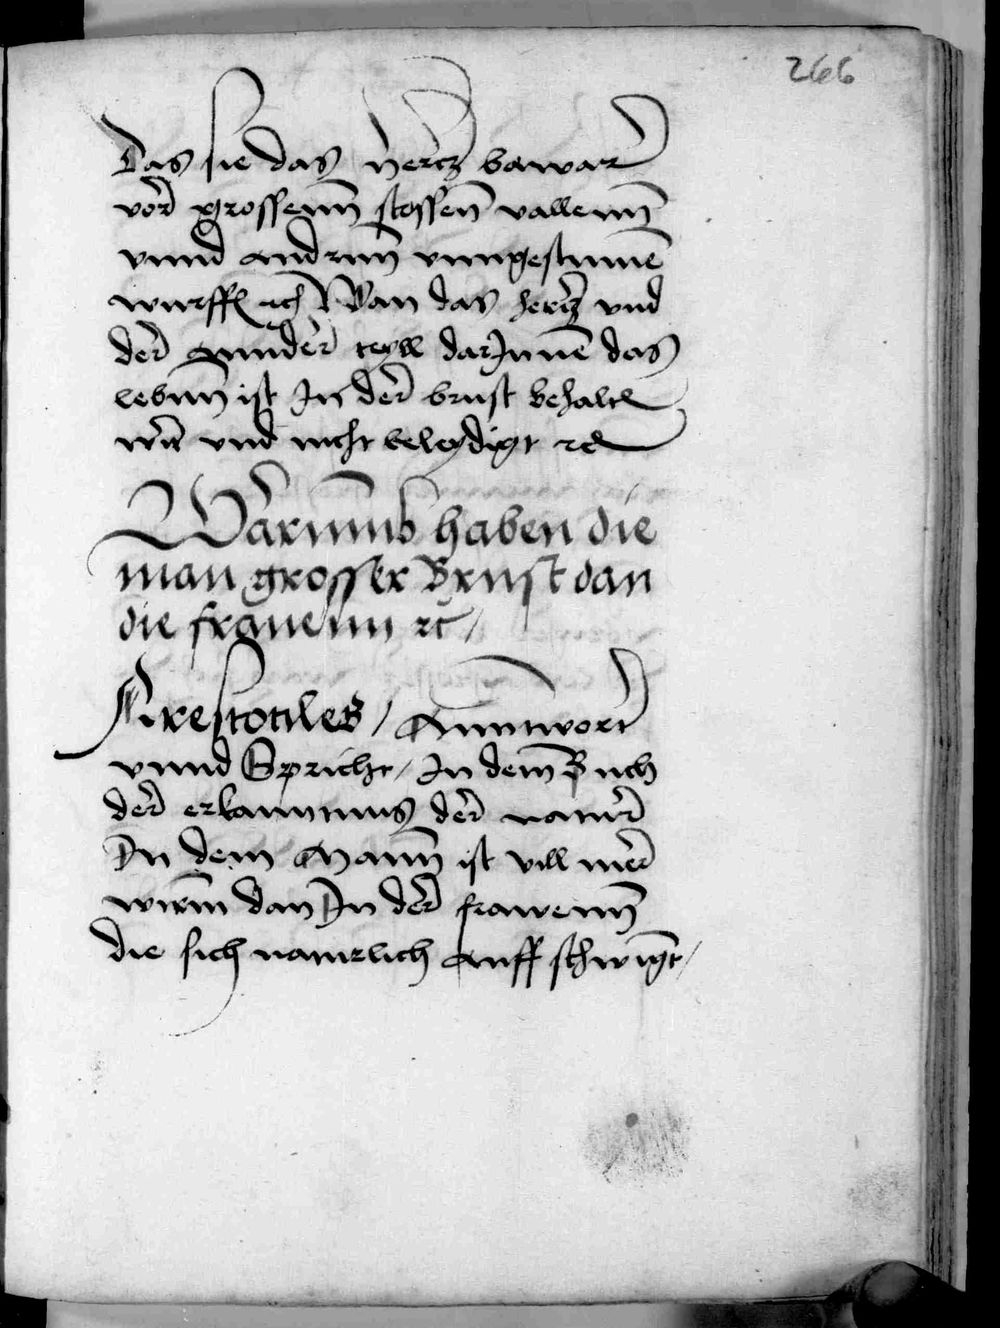 266
Das sie das hertz bewar
vor grossenn stossen vallenn
vnnd andrnn vnngestumē
wurffē ꝛcͨ Wan das hertz vnd
der annder teyll darJnnē das
lebnn ist Jn der brust behaltē
wir̄t vnd nicht beleydigt ꝛcͨ
Warumb haben die
man grosser Brust dan
die frauenn ꝛcͨ /
Arestotiles / Anntwort
vnnd Spricht / Jn dem Buch
der erkanntnus der natur
Jn dem Mann ist vill mer
wirm dan Jn der frawenn
die sich naturlich auff schwīgt /